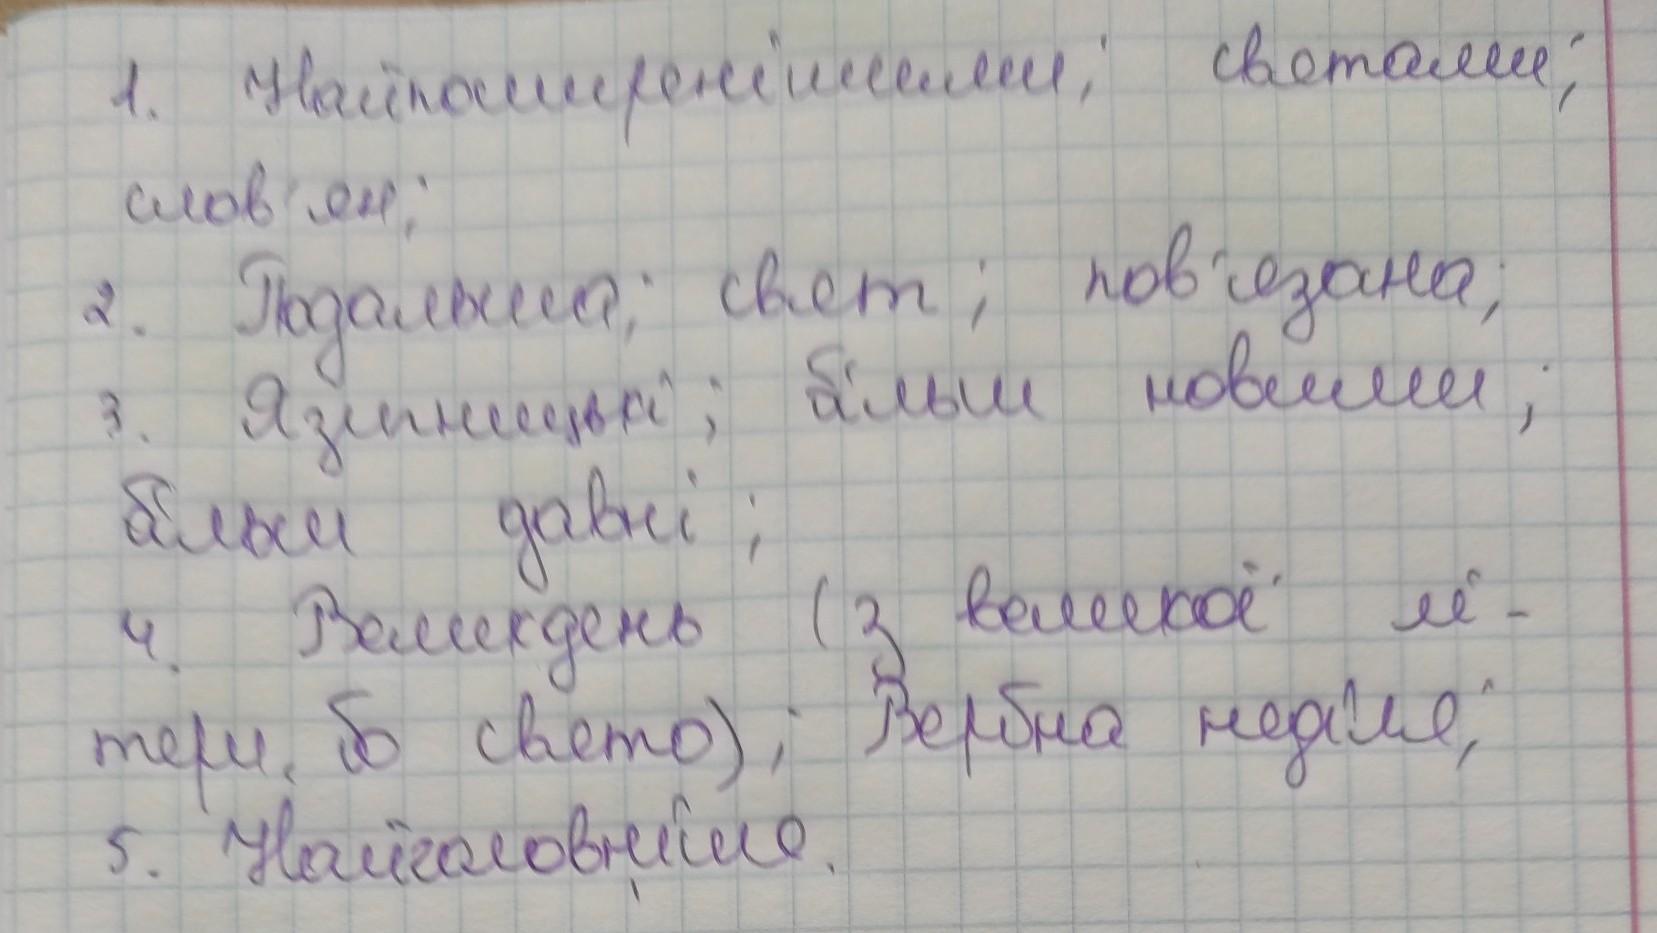 1. Найпоширенішими; святами;
слов'ян;
2. Подальша; свят; пов'язана;
3. Язичницькі; більш новими;
більш давні;
4. Великдень (з великої лі-
тери, бо свято); Вербна неділя;
5. Найголовніша.